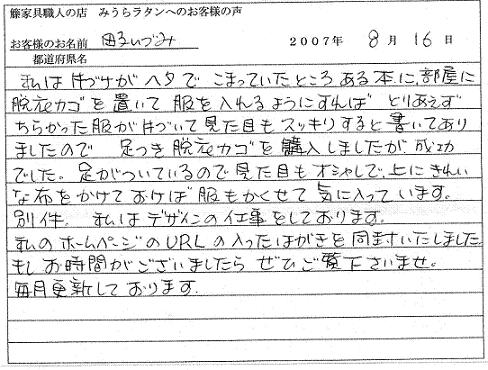 籐家具職人の店　みうらラタンへのお客様の声
お客様のお名前　いづみ　2007年　8月　16日
都道府県名
私は片づけがヘタで こまっていたところ ある本に、部屋に
脱衣カゴを置いて 服を入れるようにすれば とりあえず
ちらかった服が片づいて見た目もスッキリすると書いてあり
ましたので　足つき脱衣カゴを購入しましたが成功
でした。足がついているので見た目もオシャレで、上にきれい
な布をかけておけば服もかくせて気に入っています。
別件。私はデザインの仕事をしております。
私のホームページのURLの入ったはがきを同封いたしました。
もしお時間がございましたら ぜひご覧下さいませ。
毎月更新しております。